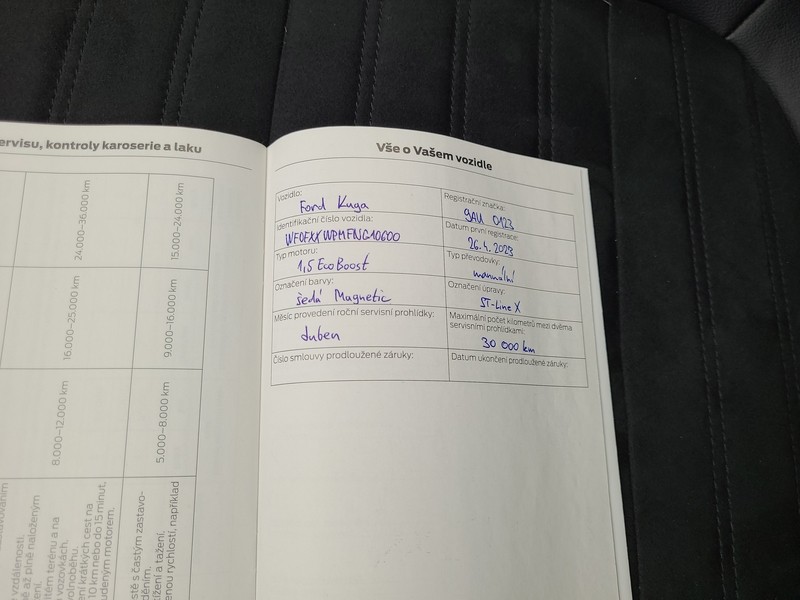 ervisu, kontroly karoserie a laku
24.000–36.000 km
15.000–24.000 km
16.000–25.000 km
9.000–16.000 km
8.000–12.000 km
5.000–8.000 km
vzdálenosti.
ě až plně naloženým
ení.
itém terénu a na
vozovkách.
volnoběhu.
ní krátkých cest na
10 km nebo do 15 minut,
udeným motorem.
stě s častým zastavo-
děním.
ížení a tažení.
enou rychlostí, například
Vše o Vašem vozidle
Vozidlo:
Ford Kuga
Registrační značka:
9AU 0123
Identifikační číslo vozidla:
WF0FXXWPMFNG10600
Datum první registrace:
26.4.2023
Typ motoru:
1,5 EcoBoost
Typ převodovky:
manuální
Označení barvy:
šedá Magnetic
Označení úpravy:
ST-Line X
Měsíc provedení roční servisní prohlídky:
duben
Maximální počet kilometrů mezi dvěma
servisními prohlídkami:
30 000 km
Číslo smlouvy prodloužené záruky:
Datum ukončení prodloužené záruky: